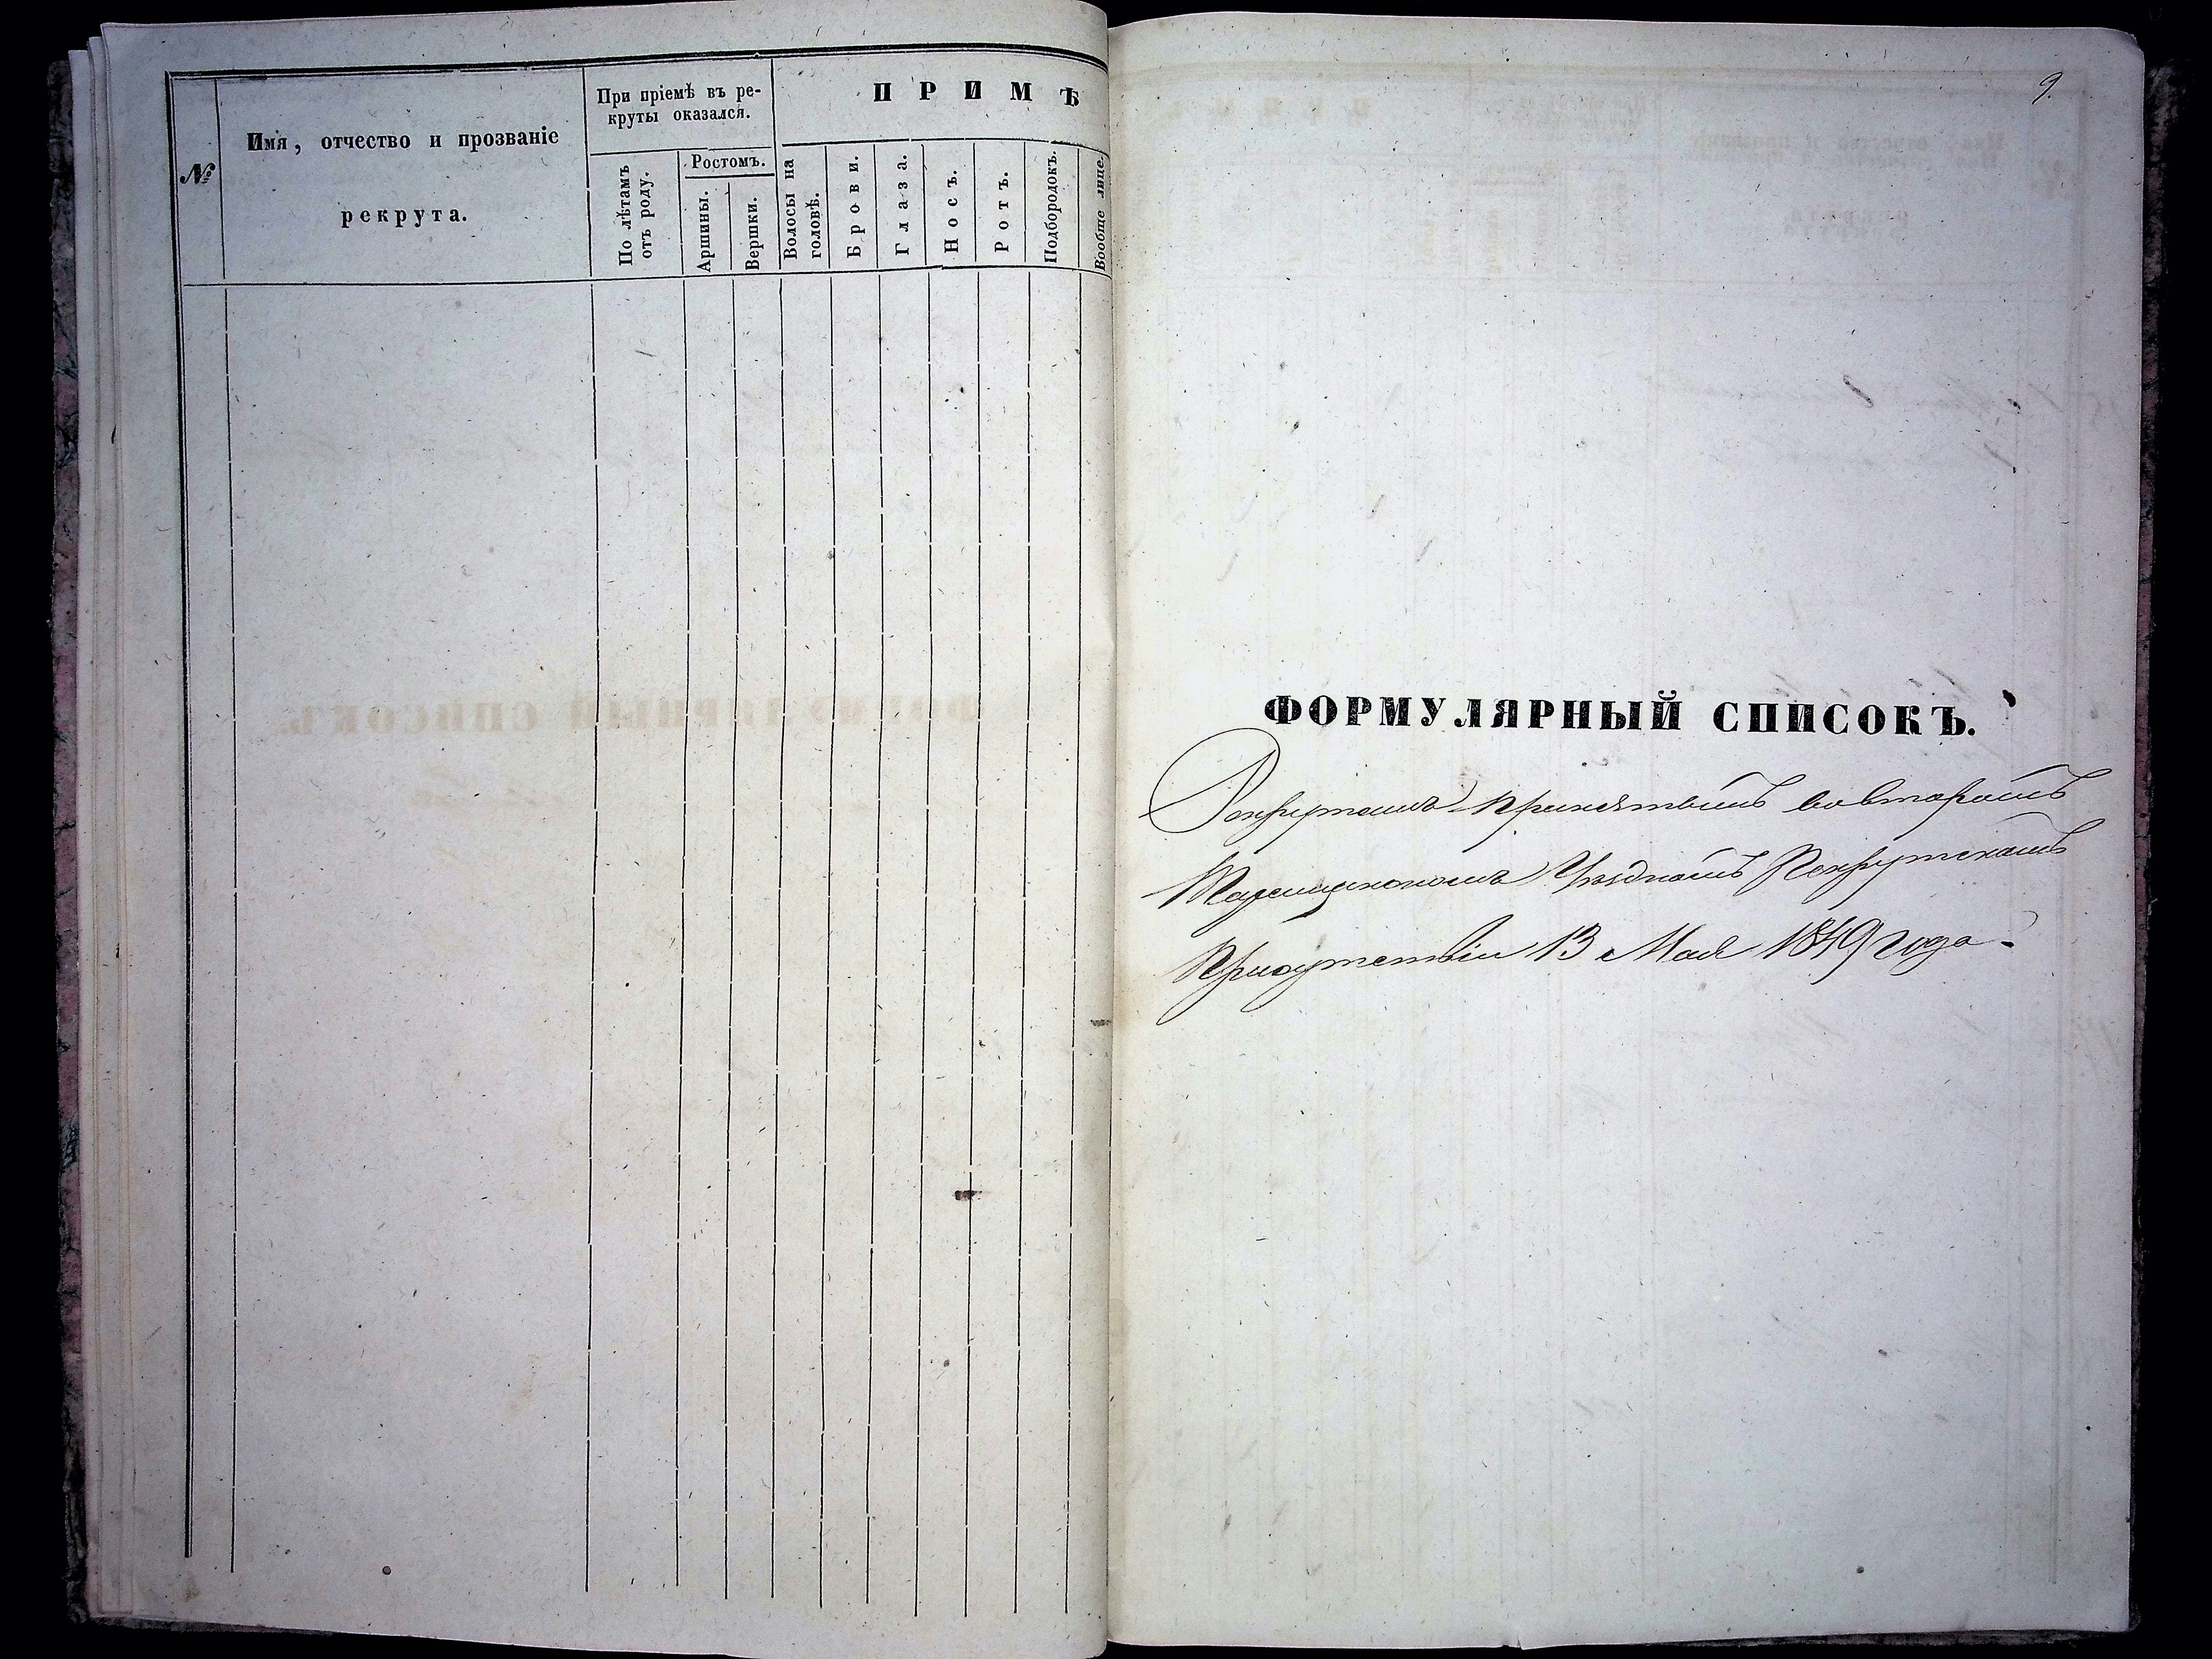 №
Имя, отчество и прозваніе
рекрута.
При пріемѣ въ ре-
круты оказался.
По лѣтамъ
отъ роду.
Ростомъ.
Аршины.
Вершки.
ПРИМѢ
Волосы на
головѣ.
Брови.
Глаза.
Носъ.
Ротъ.
Подбородокъ.
Вообще лице
9.
ФОРМУЛЯРНЫЙ СПИСОКЪ.
Рекрутамъ принятымъ во второмъ
Уѣздномъ Рекрутскомъ
Присутствіи 13 Мая 1849 года.